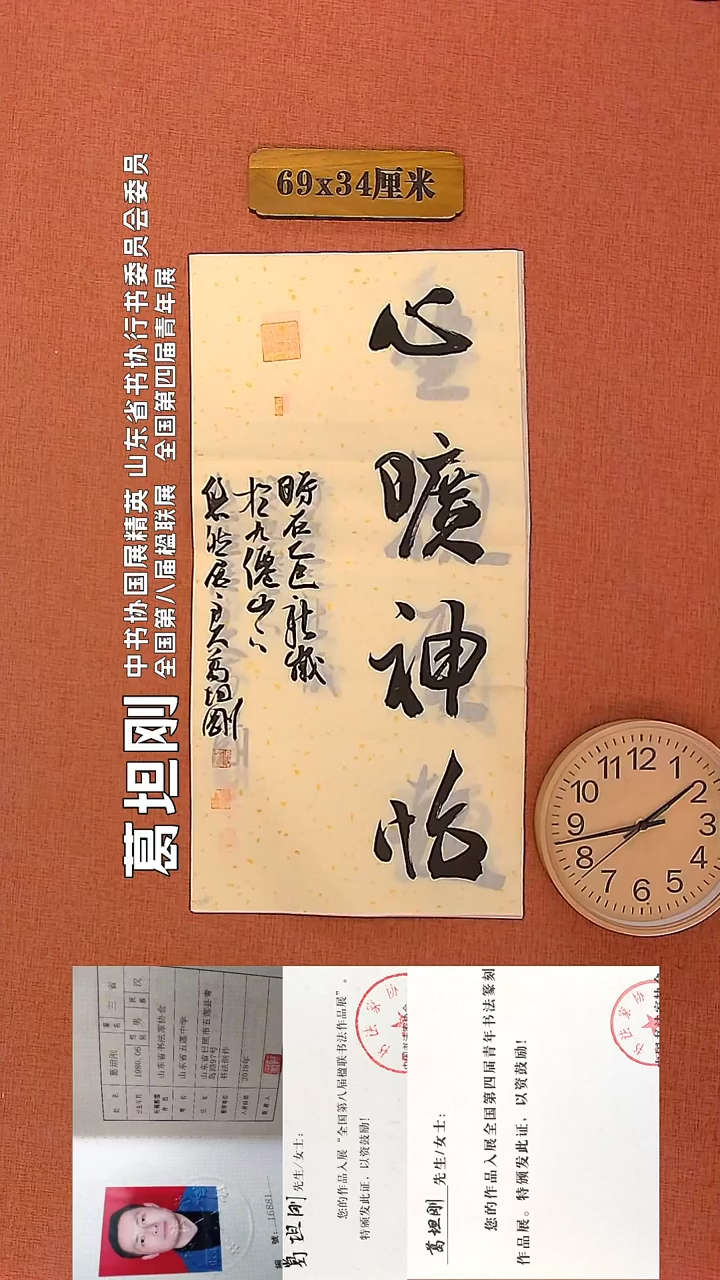 69x34厘米
葛坦刚
中书协国展精英 山东省书协行书委员会委员
全国第八届楹联展 全国第四届青年展
心曠神怡
時在乙巳秋歲
於九僊山下
悠然居主人葛坦剛
12
1
2
3
4
5
6
7
8
9
10
11
葛坦刚
三省
1980.06
男
汉
山东省书法家协会
山东省五莲中学
书法创作
2018年
號:16881
葛坦刚 先生/女士:
您的作品入展“全国第八届楹联书法作品展”。
特颁发此证，以资鼓励!
葛坦刚 先生/女士:
您的作品入展全国第四届青年书法篆刻
作品展。特颁发此证，以资鼓励!